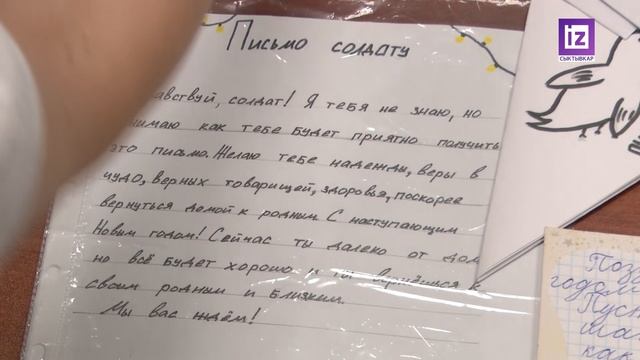 iz
СЫКТЫВКАР
Письмо солдату
авствуй, солдат! Я тебя не знаю, но
нимаю как тебе будет приятно получить
это письмо. Желаю тебе надежды, веры в
чудо, верных товарищей, здоровья, поскорее
вернуться домой к родным. С наступающим
Новым годом! Сейчас ты далеко от дом
но всё будет хорошо и ты вернёшься к
своим родным и близким.
Мы вас ждём!
Позд
годом
Пуст